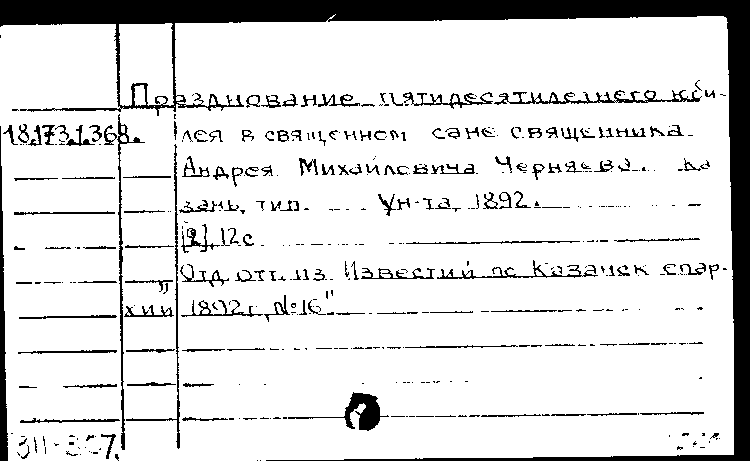 Празднование пятидесятилетнего юби-
18.173.1.368. лея в священном сане священника
Андрея Михайловича Черняева. Ка
зань, тип. Ун-та, 1892.
[2], 12 с
Отд. отт. из „Известий по Казанск епар-
хии 1892 г, №16"